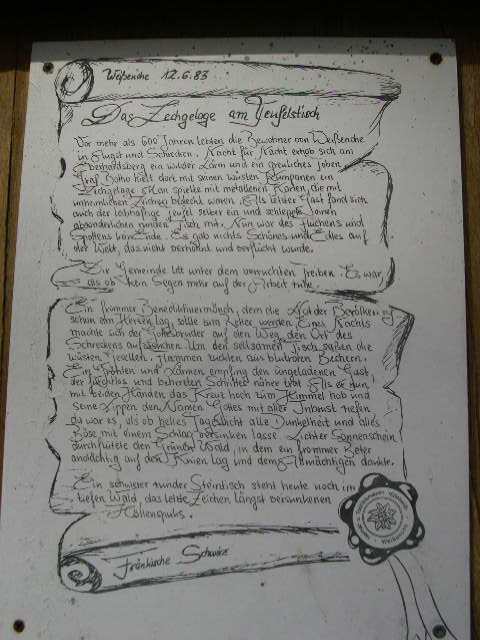 Weißenohe 12.6.83
Das Zechgelage am Teufelstisch
Vor mehr als 600 Jahren lebten die Bewohner von Weißenohe
in Angst und Schrecken. Nacht für Nacht erhob sich am
Eberhardsberg ein wilder Lärm und ein greuliches Johlen
Graf Botho hielt dort mit seinen wüsten Kumpanen ein
Zechgelage. Man spielte mit metallenen Karten, die mit
unheimlichen Zeichen bedeckt waren. Als letzter Gast fand sich
auch der leibhaftige Teufel selber ein und schleppte einen
absonderlichen runden Tisch mit. Nun war des Fluchens und
Spottens kein Ende. Es gab nichts Schönes und Edles auf
der Welt, das nicht verhöhnt und verflucht wurde.
Die Gemeinde litt unter dem verruchten Treiben. Es war,
als ob kein Segen mehr auf der Arbeit ruhe.
Ein frommer Benediktinermönch, dem die Not der Bevölkerung
schon am Herzen lag, sollte zum Retter werden. Eines Nachts
machte sich der Gottesbruder auf den Weg, den Ort des
Schreckens aufzusuchen. Um den seltsamen Tisch saßen die
wüsten Gesellen. Flammen zuckten aus blutroten Bechern.
Ein Gröhlen und Lärmen empfing den ungeladenen Gast,
der furchtlos und beherzten Schrittes näher trat. Als er nun
mit beiden Händen das Kreuz hoch zum Himmel hob und
seine Lippen den Namen Gottes mit aller Inbrunst riefen
da war es, als ob helles Tageslicht alle Dunkelheit und alles
Böse mit einem Schlag versinken lasse. Lichter Sonnenschein
durchflutete den Grünen Wald, in dem ein frommer Beter
andächtig auf den Knien lag und dem Allmächtigen dankte.
Ein schwerer runder Steintisch steht heute noch im
tiefen Wald, das letzte Zeichen längst versunkenen
Höllenspuks.
Fränkische Schweiz